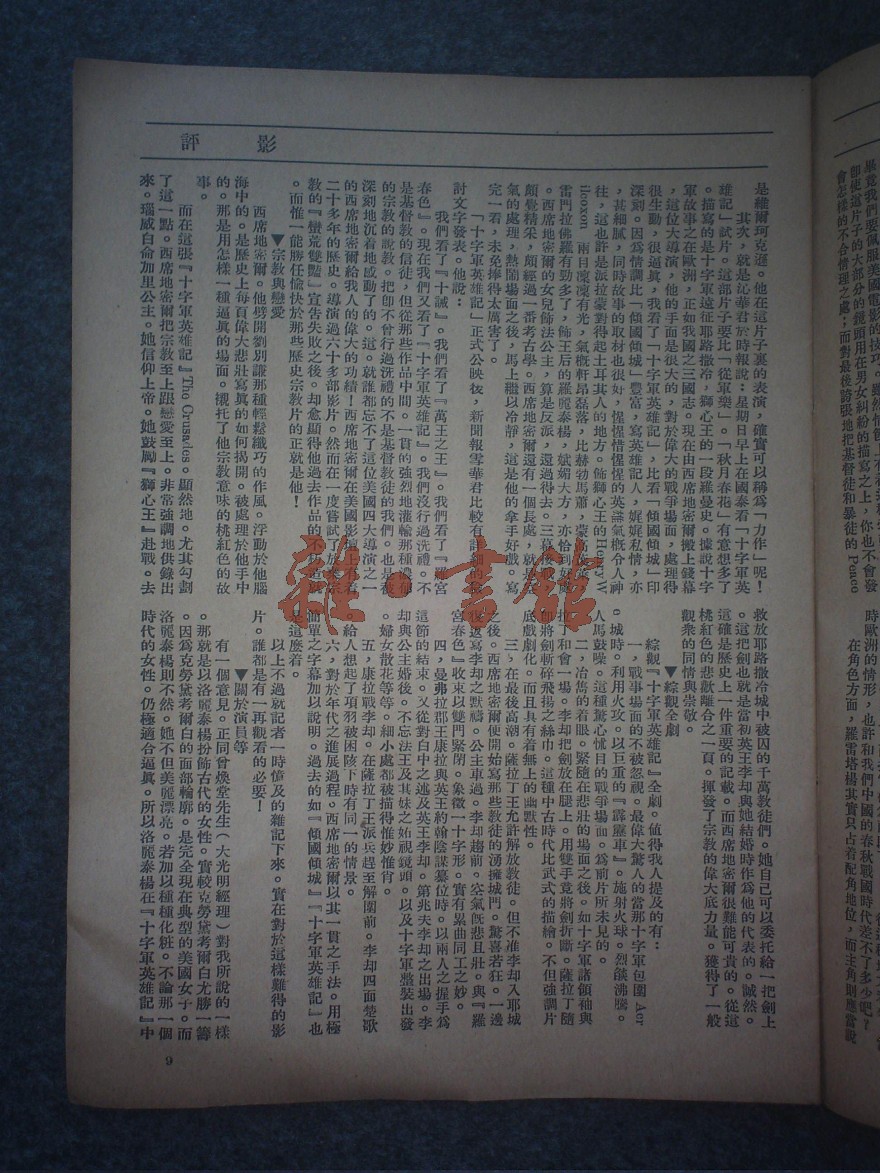 影評
是維爾珂克遜。他在這片子裏的表演，確實可以稱為「力作」呢！
其次，就是沁華君於時報說：星期日早上在國泰看「十字軍英
雄記」試片。這部片子要比「從軍樂」「秋月春花」有意想多了
。描寫的是十字軍遠征耶路撒冷，獅心王的一段羅曼史。據說十字
軍故事之在歐洲，正如我國之三國志。現在由西席地密爾搬上錢幕
，這位大導演，他的手面是很大的，對於偉大的戰爭場面，處理得
很生動，很逼真，我看了「十字軍英雄記」，比看「傾國傾城」印
深刻。因為情調比「傾國傾城」豐富，寫英雄記人，娓娓私情，亦
，甚細膩，同時故事的取材也很好，惺惺惜惺惺的英諦氣概令人神
往，這也許是派拉蒙對得起土耳其人的地方。飾獅心王的Henry W
ilooxon 兩目凜凜有光，氣概軒昂磊落，比赫勃馬蕭，蒙哥
雷門拉佛羅有勁多了，飾王后的羅麗泰楊，斌媚大方，亦恰到好處
。西席地密爾的女兒飾法公主，算是反派，還過得去。三幕後
頗覺精采，頗經過一番考古學。西席地密爾還有一個長處，就是
氣的處理，熱鬧場面之後，馬上繼以冷靜，這是他的拿手好戲。寫
完一看，未免捧得太厲害了。
「十字軍英雄記」正式公映後，新聞報雪華君比較有詳細的檢
討文字發表。他說：
我們看了『十誡』。我們看了『萬王之王』。我們看了『羅宮
春色』。現在我們又看了『十字軍英雄記』。我們沒行過洗禮。不
是基督教的信徒，但從那些作品中間。一貫的強烈地灌輸那種濃
的宗教的說教。把卽不曾行過洗禮的不是基督教徒的我們。也是
深刻地沉着地感動了的。這。就誰都忘不了這位美國四大導演之一
的西席地密爾給我人的偉大的功績！西席地密爾在美國影壇上有着
二十多年的歷史。導演過六十多部影片。然而在一度嘗試了放棄宗
教的『蠻荒雙豔』宣告失敗之後。却愈顯得他過去作品的不朽
。而惟一能勝任愉快於那些歷史宗教片的正就是他！
▼宗教與戀愛
西席地密爾。他劈開劉別謙那種輕鬆纖巧的作風。浮動於他腦
海中的。是歷史上每頁偉大悲壯寫真的如何揭開。被處理於他手中
的。那是用怎樣一種逼真的場面。襯托了他宗教意味的桃紅色的故
事。
而在這張『十字軍英雄記』The Crusades。顯然地。尤其勾劃
了這一點。西席地密爾把宗教至上跟戀愛至上。非常強調地供錄出
來。瑞威白侖加里公主。她信仰上帝。她鼓勵『獅心王』赴戰。去
救放耶路撒冷城中被囚的千萬教徒們。她自己可以委托給一把劍上
。這把劍也就是當初英王李却與她結婚時作為他的代表的。誠然。
這確是歷史上一件重要的記載。而西席地密爾很難能可貴的。從這
桃紅色的悲歡離合之一頁。揮發了宗教的偉大底力量。獲得了一般
觀衆的同情與崇敬。
▼綜觀全劇
綜觀『十字軍英雄記』全劇。值得我人提及的有：
一，戰事場面的不被忽視。最偉大驚人的當那十字軍包圍 Acr
e 城時。利用火攻。以巨重的『霹靂車』。施射火球。烈燄沸騰。
人馬鼓噪。這種驚心怵目的戰爭場面。為前片所未見的。
二，冶雋的着眼。緊隨在悲壯的場面之後。如十字軍諸領袖與
拉丁和會一場。李却把劍放在腿上。用雙手竟將劍折斷。薩拉丁隨
卽將劍斬碎飛揚之絲巾。這種中古時代比武式的描繪。不但強調片
底戲劇化。而且具有着無上的幽默性。
三，在最後高潮。薩拉丁王允許解放教徒。但不准李却入耶城
之後。西席地密爾便開始寫那些教徒的湧擁城門。驚喜若狂。一邊
復返寫李却之默禱。公主車過。李却趨前。空氣旣悲且壯。與『羅
宮春色』收束以雙門緊閉。象徵一十字形。實有累曲同工之妙。
四，曼弗拉郡王康拉與英王約翰陰謀纂位時。以兩人之握手為
這節的結束。又從對白中之述及英王李却。第兆夫李却之出場。李
却與公主婚後。不忘法王及其妹之妬視鏡頭。以及十字軍整裝出發
。婦女散花等等。細小處都被描得惟妙惟肖。
五，康拉戰李却。在薩拉丁王派兵趕至解圍前。李却四面楚歌
。給人想起了項羽被困陔下時有同一的情景。
六，對於年代之進展過程。西席地密爾以其一貫之手法。用極
簡單之字幕加以說明。過去的如『傾國傾城』『十字軍英雄記』也
是這麼着。
以上不過就記者一時憶及的雜記下來。實在對於這樣難得的影
片。誰都是有一再觀看的必要！
▼關於演員等
有一個意見。正同曾煥堂先生（大光明經理）對我所說的一樣
。那就是以洛麗泰楊扮飾古代的女性。實較克勞黛考爾白尤勝一籌
。因為克勞黛考爾白的面部輪廓。是完全現在典型的美國女子。而
洛麗泰楊則不然。她不但美麗漂亮。若加以種種化粧。不論那一個
時代的女性。仍極適合逼真。所以洛麗泰楊在『十字軍英雄記』中
9